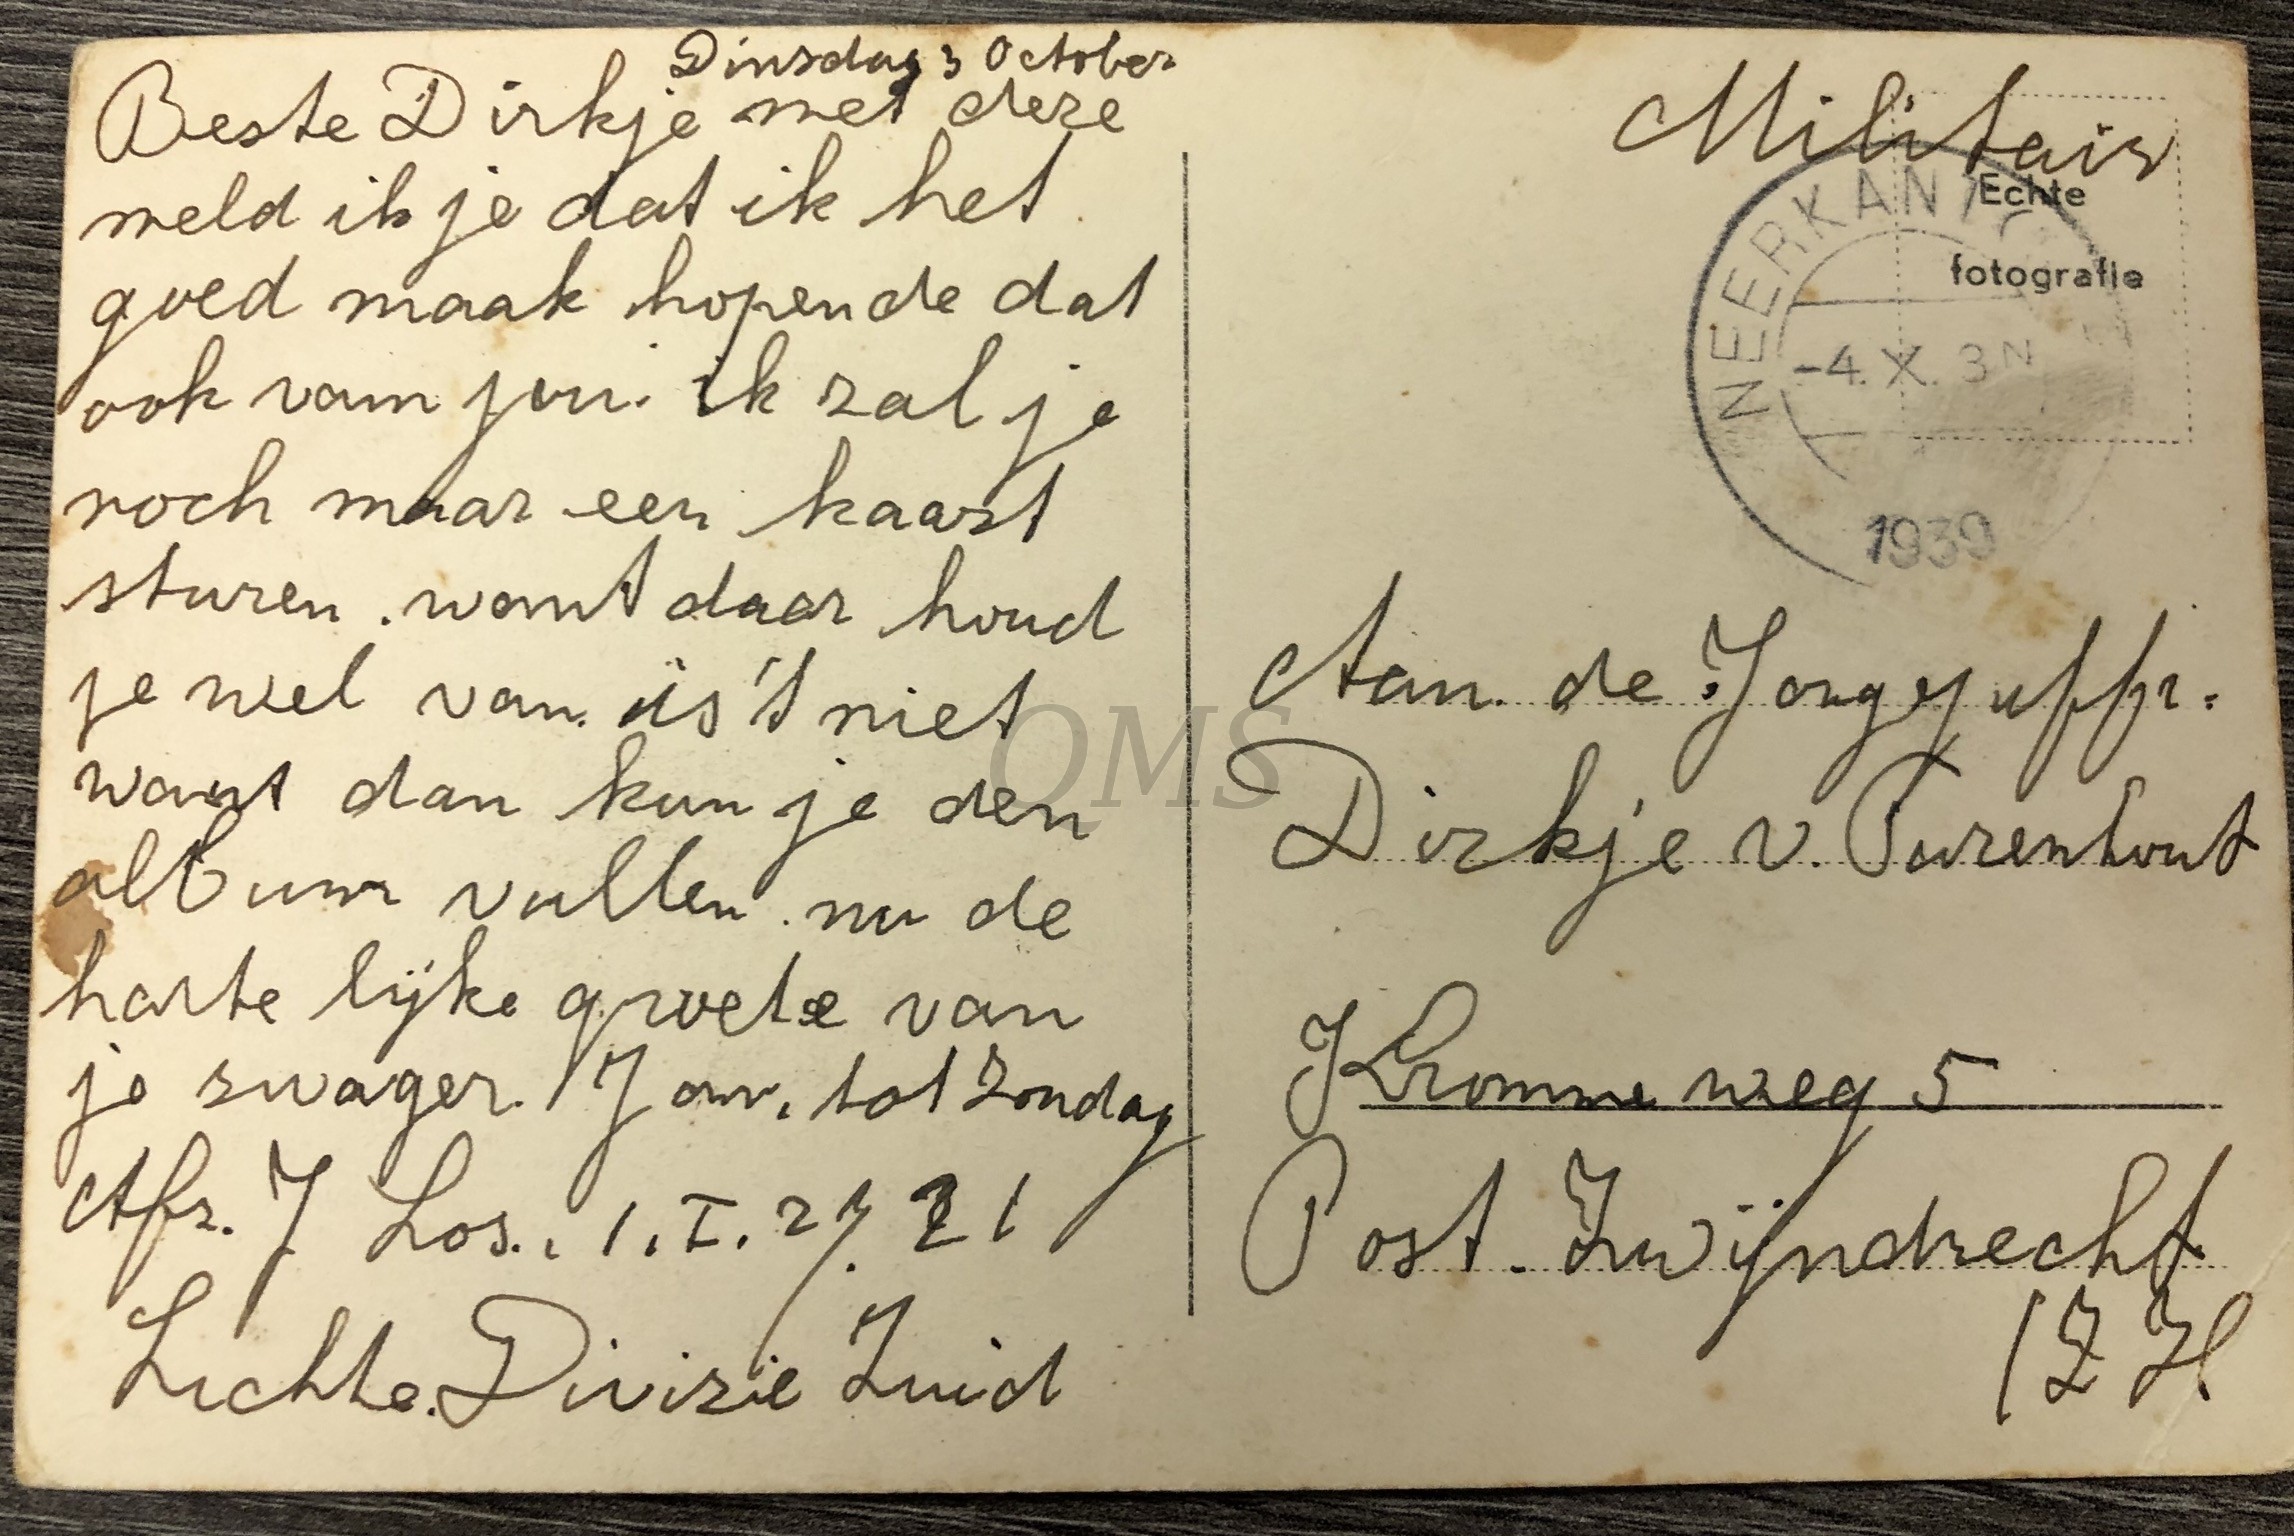 Dinsdag 3 October
Beste Dirkje met deze
meld ik je dat ik het
goed maak hopende dat
ook vam jou. ik zal je
noch maar een kaart
sturen. want daar houd
je wel van. is 't niet
want dan kun je den
album vullen. nu de
harte lijke groete van
je swager. Jan. tot Zondag
Afz. J Los. 1. I. 27. 21
Lichte. Divisie Zuid
Militair
Echte
fotografie
NEERKANT
-4. X. 3 N
1939
Aan. de Jongejuffr.
Dirkje v. Purenhout
Kromme weg 5
Post. Zwijndrecht
(Z H
QMS